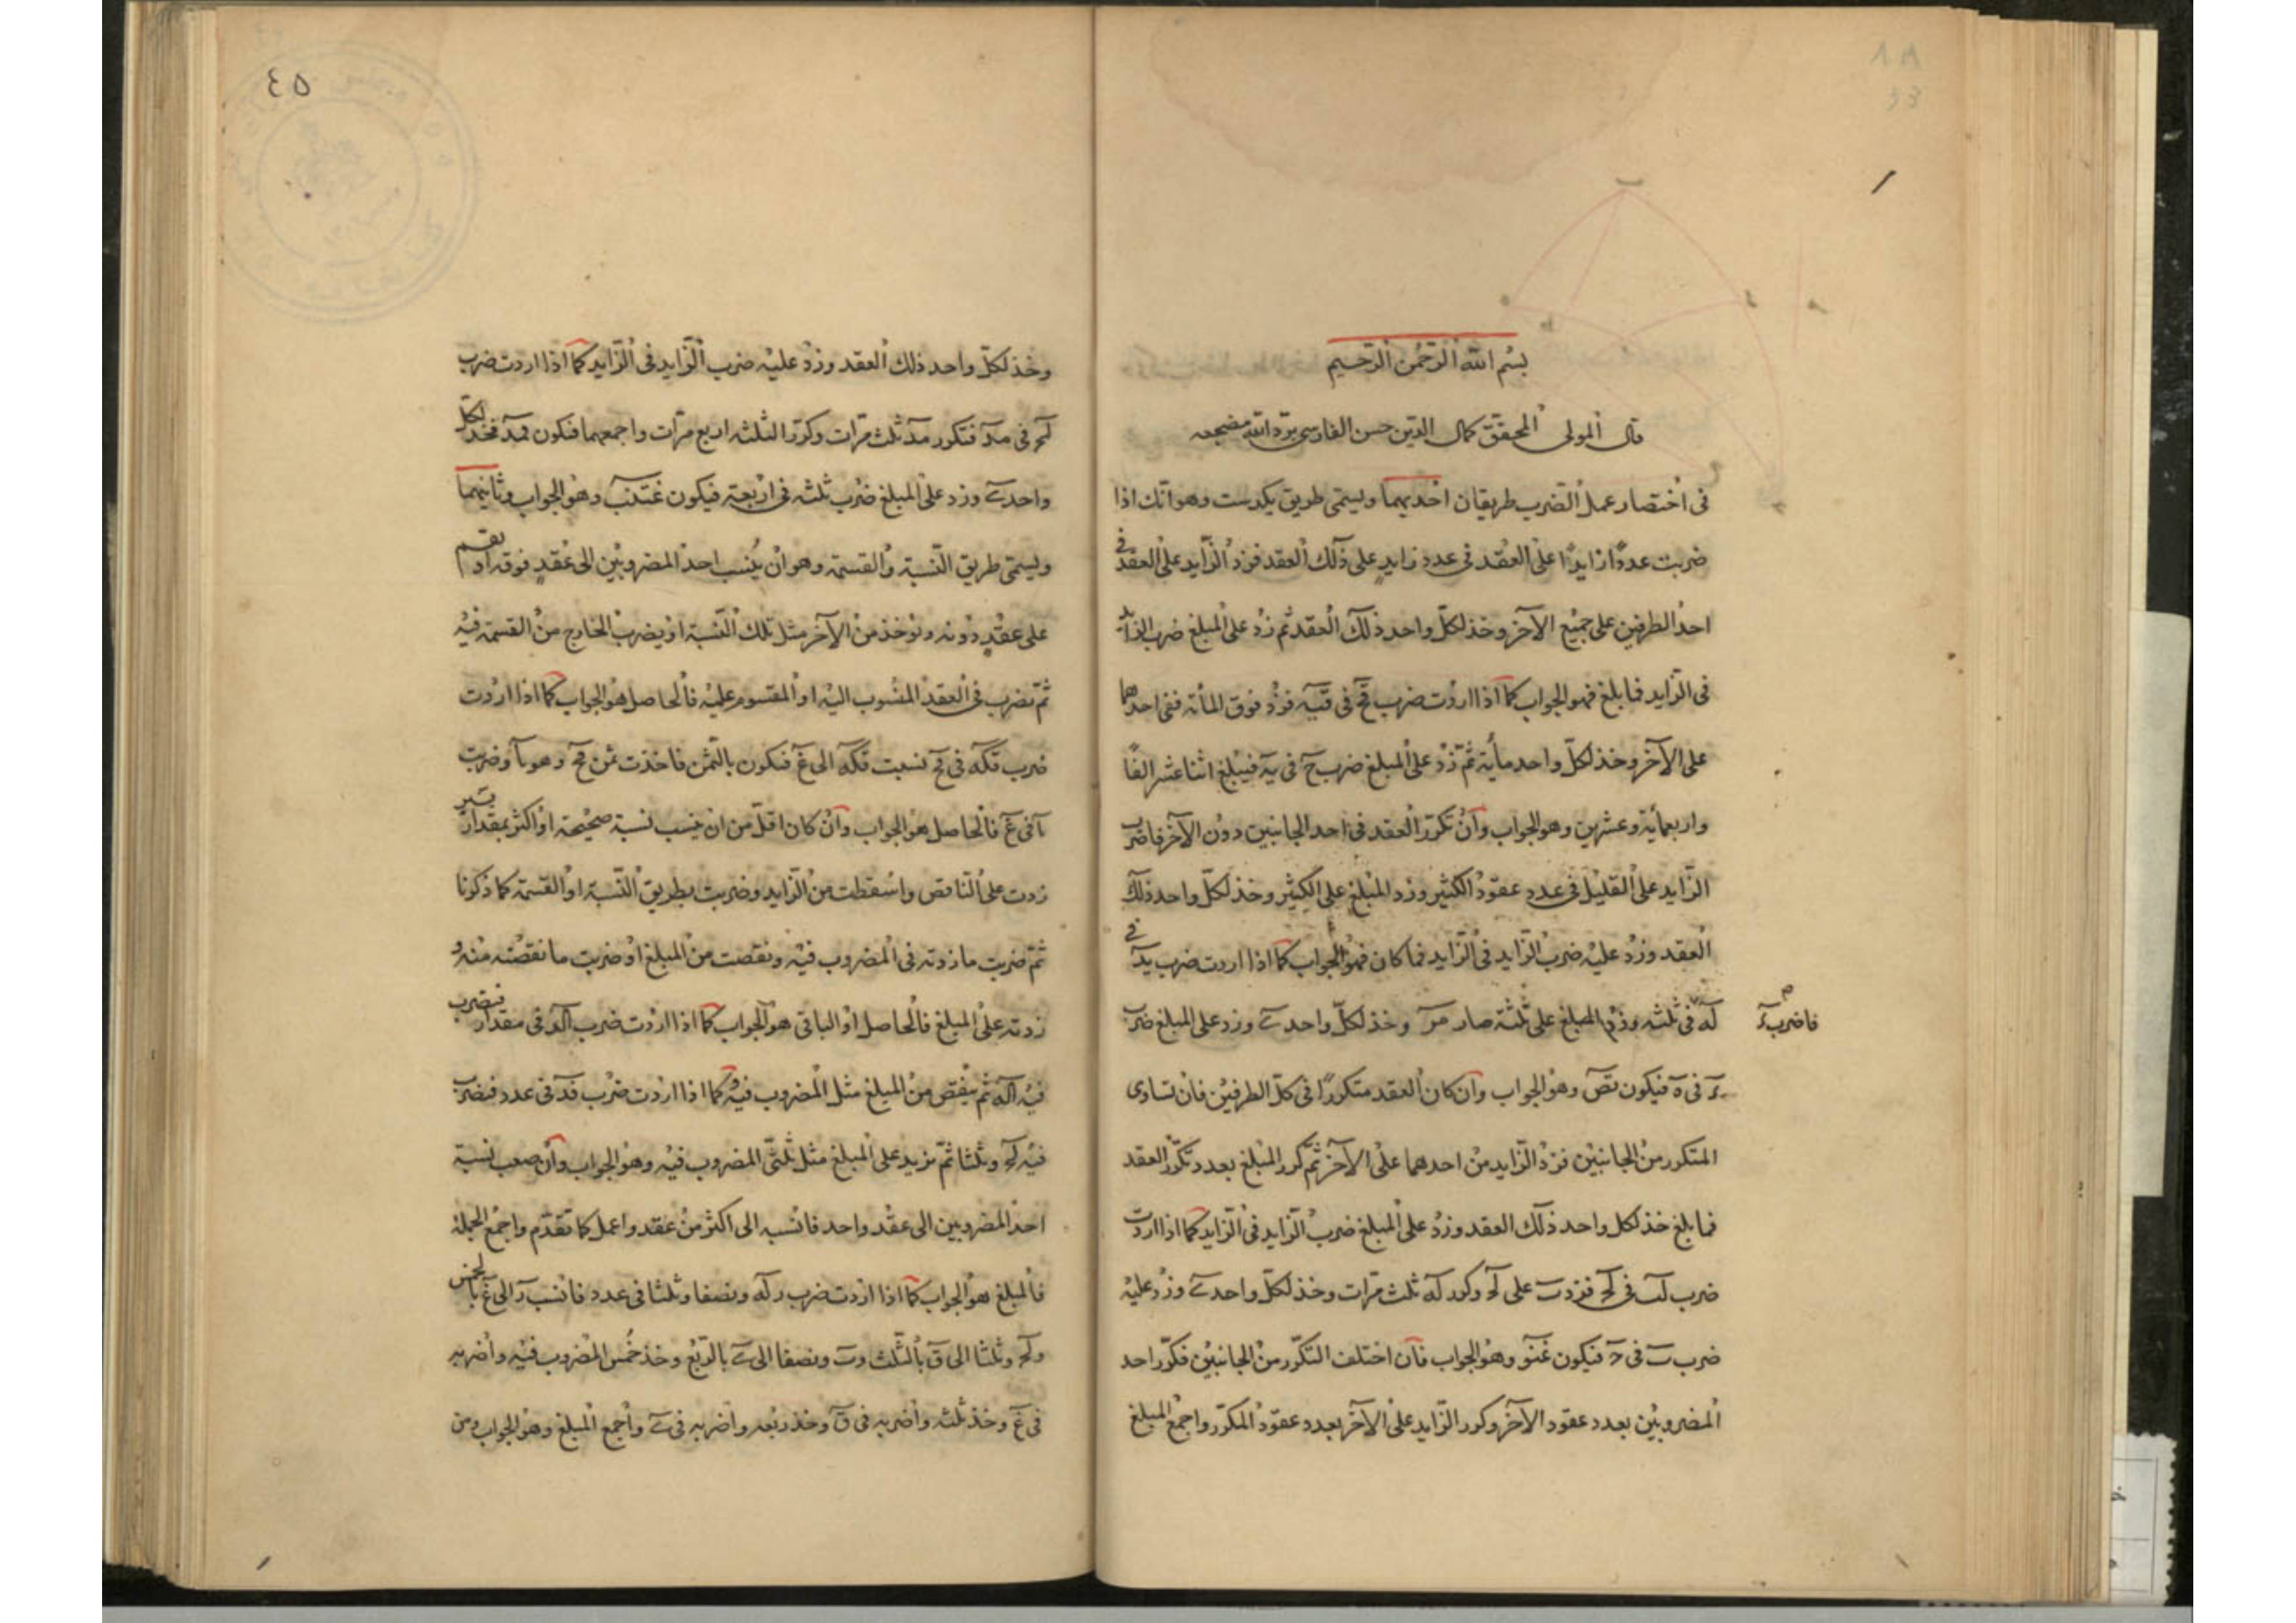 بسم الله الرحمن الرحيم
قال المولى المحقق كمال الدين حسن الفارسى برد الله مضجعه
فى اختصار عمل الضرب طريقان احديهما ويسمى طريق يكدست وهو انك اذا
ضربت عددا زايدا على العقد فى عدد زايد على ذلك العقد فزد الزايد على العقد فى
احد الطرفين على جميع الآخر وخذ لكل واحد ذلك العقد ثم زد على المبلغ ضرب الزايد
فى الزايد فما بلغ فهو الجواب كما اذا اردت ضرب قح فى قيه فزد فوق المأته ففى احدهما
على الآخر وخذ لكل واحد مأية ثم زد على المبلغ ضرب ح فى يه فيبلغ اثنا عشر الفا
واربعمأية وعشرين وهو الجواب وان تكرر العقد فى احد الجانبين دون الآخر فاضرب
الزايد على القليل فى عدد عقود الكثير وزد المبلغ على الكثير وخذ لكل واحد ذلك
العقد وزد عليه ضرب الزايد فى الزايد فما كان فهو الجواب كما اذا اردت ضرب يد فى
له فى ثلثه وزد المبلغ على ثلثة صار مر وخذ لكل واحد ى وزد على المبلغ ضرب
فاضرب د
د فى ه فيكون تص وهو الجواب وان كان العقد متكررا فى كل الطرفين فان تساوى
المتكرر من الجانبين فزد الزايد من احدهما على الآخر ثم كرر المبلغ بعدد تكرر العقد
فما بلغ خذ لكل واحد ذلك العقد وزد على المبلغ ضرب الزايد فى الزايد كما اذا اردت
ضرب لب فى لح فزدت على لح وكرر له ثلث مرات وخذ لكل واحد ى وزد عليه
ضرب ب فى ح فيكون غنو وهو الجواب فان اختلف التكرر من الجانبين فكرر احد
المضروبين بعدد عقود الآخر وكرر الزايد على الآخر بعدد عقود المكرر واجمع المبلغ
٤٥
وخذ لكل واحد ذلك العقد وزد عليه ضرب الزايد فى الزايد كما اذا اردت ضرب
لح فى مد فتكرر مد ثلث مرات وكرر الثلثه اربع مرات واجمعهما فتكون قمد فخذ لكل
واحد ى وزد على المبلغ ضرب ثلثه فى اربعة فيكون غتنب وهو الجواب وثانيهما
ويسمى طريق النسبة والقسمة وهو ان ينسب احد المضروبين الى عقد فوقه او يقسم
على عقد دونه ونوخذ من الآخر مثل تلك النسبة او يضرب الخارج من القسمة فيه
ثم تضرب فى العقد المنسوب اليه او المقسوم عليه فالحاصل هو الجواب كما اذا اردت
ضرب قكه فى فح نسبت قكه الى غ فتكون بالثمن فاخذت ثمن فح وهو يا وضربت
يا فى غ فالحاصل هو الجواب وان كان اقل من ان ينسب نسبة صحيحة او اكثر بمقدار يسير
زدت على الناقص واسقطت من الزايد وضربت بطريق النسبة او القسمة كما ذكرنا
ثم ضربت ما زدته فى المضروب فيه ونقصت من المبلغ او ضربت ما نقصته منه و
زدته على المبلغ فالحاصل او الباقى هو الجواب كما اذا اردت ضرب الد فى مقدار فتضرب
فيه اله ثم ينقص من المبلغ مثل المضروب فيه كما اذا اردت ضرب قد فى عدد فتضرب
فيه لح وثلثا ثم نزيد على المبلغ مثل ثلثى المضروب فيه وهو الجواب وان صعب نسبة
احد المضروبين الى عقد واحد فانسبه الى اكثر من عقد واعمل كما تقدم واجمع الجملة
فالمبلغ هو الجواب كما اذا اردت ضرب رله ونصفا وثلثا فى عدد فانسب ر الى غ بالخمس
ولح وثلثا الى ق بالثلث وب ونصفا الى ى بالربع وخذ خمس المضروب فيه واضربه
فى غ وخذ ثلثه واضربه فى ق وخذ ربعه واضربه فى ى واجمع المبلغ وهو الجواب ومن